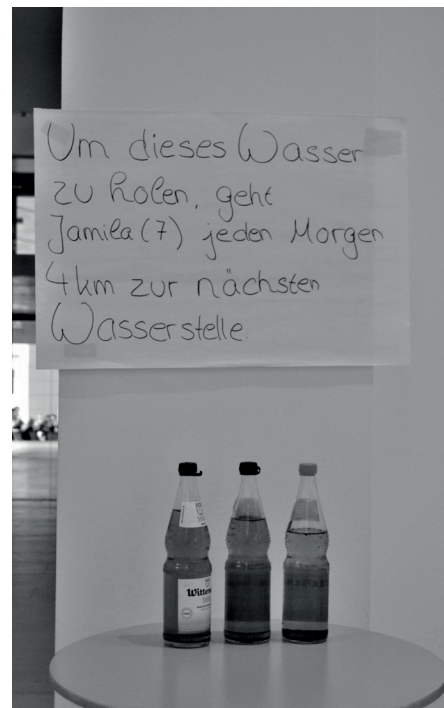 Um dieses Wasser
zu holen, geht
Jamila (7) jeden Morgen
4 km zur nächsten
Wasserstelle.